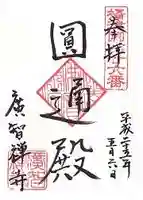 奉拝
平成二十五年
五月六日
圓通殿
廣智禅寺